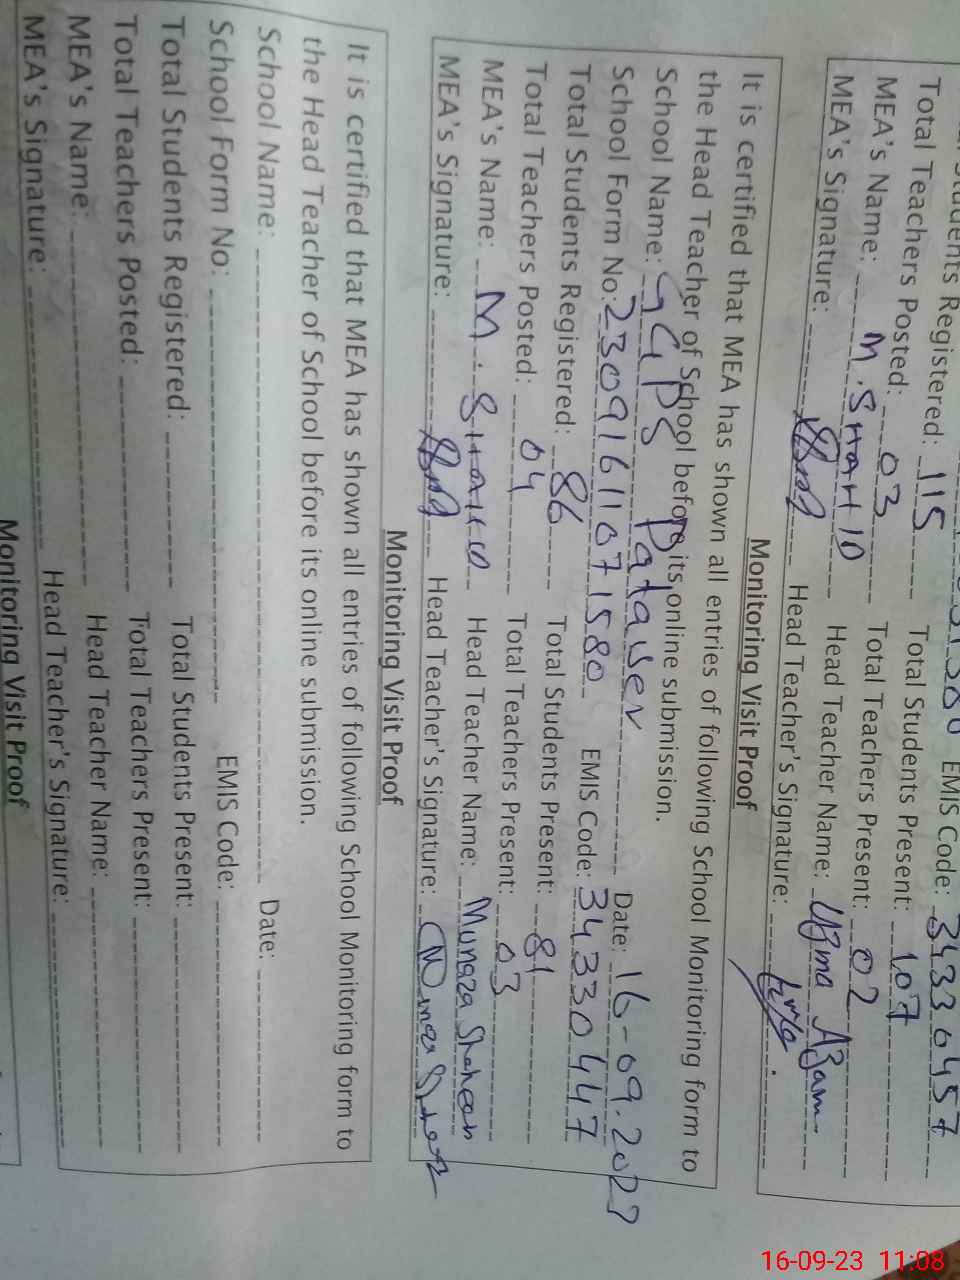 Students Registered: 115 Total Students Present: 107
EMIS Code: 34330457
Total Teachers Posted: 03 Total Teachers Present: 02
MEA's Name: M. Shahid Head Teacher Name: Uzma Azam
MEA's Signature: Head Teacher's Signature:
Monitoring Visit Proof
It is certified that MEA has shown all entries of following School Monitoring form to
the Head Teacher of School before its online submission.
School Name: GGPS Date: 16-09.2023
School Form No: 23091611071580 EMIS Code: 34330447
Total Students Registered: 86 Total Students Present: 81
Total Teachers Posted: 04 Total Teachers Present: 03
MEA's Name: M. Shahid Head Teacher Name: Munaza Shaheen
MEA's Signature: Head Teacher's Signature:
Monitoring Visit Proof
It is certified that MEA has shown all entries of following School Monitoring form to
the Head Teacher of School before its online submission.
School Name: Date:
School Form No: EMIS Code:
Total Students Registered: Total Students Present:
Total Teachers Posted: Total Teachers Present:
MEA's Name: Head Teacher Name:
MEA's Signature: Head Teacher's Signature:
Monitoring Visit Proof
16-09-23 11:08